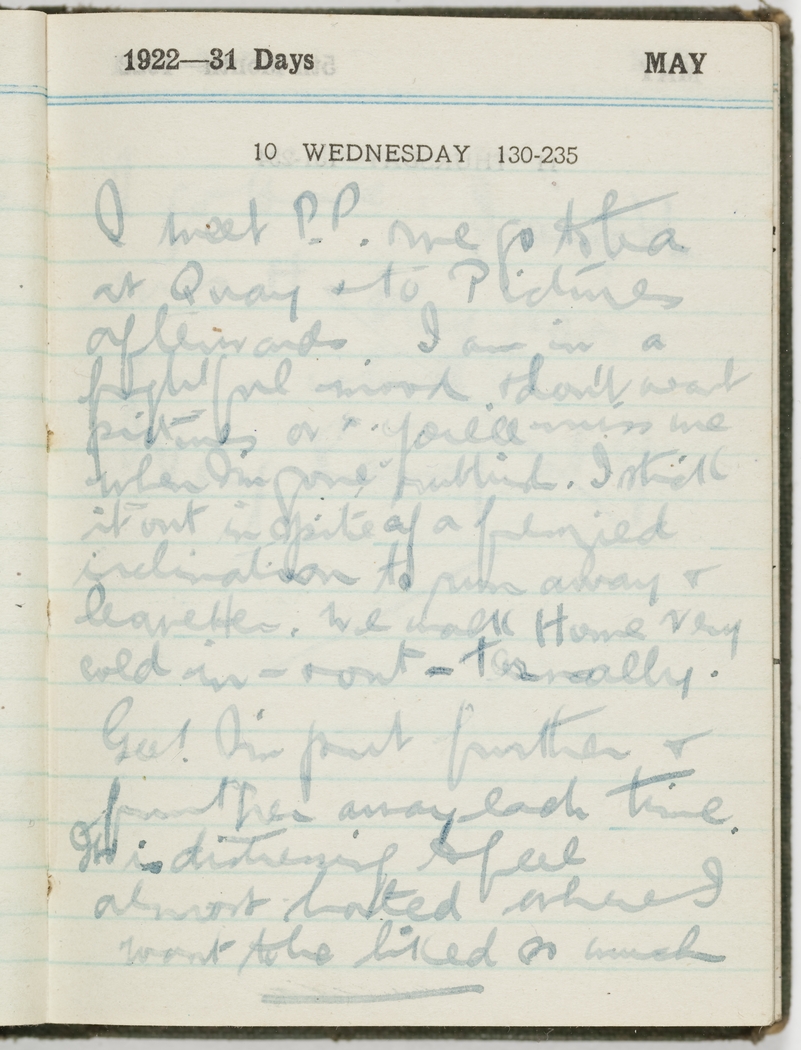 1922—31 Days MAY
10 WEDNESDAY 130-235
I meet P.P. & we go to tea
at Quay & to Pictures
afterwards I am in a
frightful mood & don't want
pictures or "you'll miss me
when I'm gone" rubbish. I stick
it out in spite of a frenzied
inclination to run away &
leave her. We walk Home very
cold in - & out - ternally.
Gee! I'm put further &
further away each time.
It is distressing to feel
almost hated where I
want to be liked so much